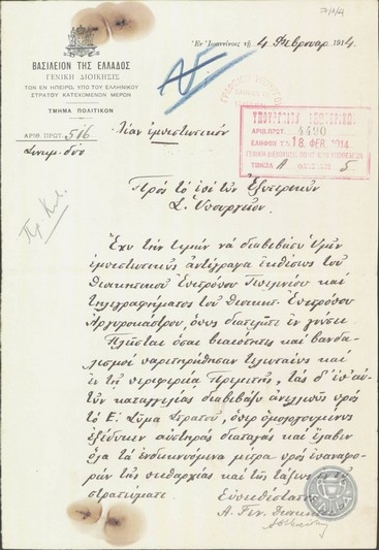 Ἐν Ἰωαννίνοις τῇ 4 Φεβρουαρ. 1914.
ΒΑΣΙΛΕΙΟΝ ΤΗΣ ΕΛΛΑΔΟΣ
ΓΕΝΙΚΗ ΔΙΟΙΚΗΣΙΣ
ΤΩΝ ΕΝ ΗΠΕΙΡΩ, ΥΠΟ ΤΟΥ ΕΛΛΗΝΙΚΟΥ
ΣΤΡΑΤΟΥ ΚΑΤΕΧΟΜΕΝΩΝ ΜΕΡΩΝ
ΤΜΗΜΑ ΠΟΛΙΤΙΚΟΝ
ΑΡΙΘ. ΠΡΩΤ. 516
Συνημ. δύο
Λίαν ἐμπιστευτικόν
ΥΠΟΥΡΓΕΙΟΝ ΕΞΩΤΕΡΙΚΩΝ
ΑΡΙΘ. ΠΡΩΤ. 4490
ΕΛΗΦΘΗ ΤΗ 18 ΦΕΒ. 1914
ΤΜΗΜΑ Α 5
Πρὸς τὸ ἐπὶ τῶν Ἐξωτερικῶν
Σ. Ὑπουργεῖον.
Ἔχω τὴν τιμὴν νὰ διαβιβάσω Ὑμῖν
ἐμπιστευτικῶς ἀντίγραφα ἐκθέσεως τοῦ
Διοικητικοῦ Ἐπιτρόπου καὶ
τηλεγραφήματος τοῦ Διοικητ. Ἐπιτρόπου
Ἀργυροκάστρου, ὅπως διατελῆτε ἐν γνώσει.
Πλεῖσται ὅσαι βιαιότητες καὶ βανδα-
λισμοὶ παρετηρήθησαν τελευταίως καὶ
ἐν τῇ περιφερείᾳ Πρεμετῆς, τὰς δ' ἐπ' αὐ-
τῶν καταγγελίας διεβίβαζον ἀνελλιπῶς πρὸς
τὸ Ε΄. Σῶμα Στρατοῦ, ὅπερ ὁμολογουμένως
ἐξέδωκεν αὐστηρὰς διαταγὰς καὶ ἔλαβεν
ὅλα τὰ ἐνδεικνυόμενα μέτρα πρὸς ἐπαναφο-
ρὰν τῆς πειθαρχίας καὶ τῆς τάξεως
στρατεύματι.
Εὐπειθέστατος